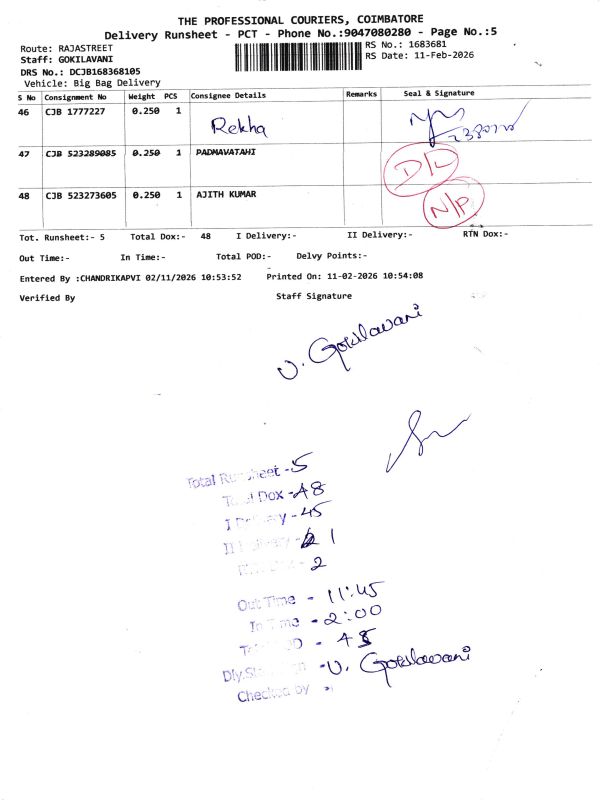 THE PROFESSIONAL COURIERS, COIMBATORE
Delivery Runsheet - PCT - Phone No.:9047080280 - Page No.:5
Route: RAJASTREET
RS No.: 1683681
Staff: GOKILAVANI
RS Date: 11-Feb-2026
DRS No.: DCJB168368105
Vehicle: Big Bag Delivery
S No Consignment No Weight PCS Consignee Details Remarks Seal & Signature
46 CJB 1777227 0.250 1 Rekha
47 CJB 523289085 0.250 1 PADMAVATAHI D/L
48 CJB 523273605 0.250 1 AJITH KUMAR N/P
Tot. Runsheet:- 5 Total Dox:- 48 I Delivery:- II Delivery:- RTN Dox:-
Out Time:- In Time:- Total POD:- Delvy Points:-
Entered By :CHANDRIKAPVI 02/11/2026 10:53:52 Printed On: 11-02-2026 10:54:08
Verified By Staff Signature
U. Gokilavani
Total Runsheet - 5
Total Dox - 48
I Delivery - 45
II Delivery - 1
- 2
Out Time - 11:45
In Time - 2:00
Total POD - 45
Dly.Staff Sign - U. Gokilavani
Checked by